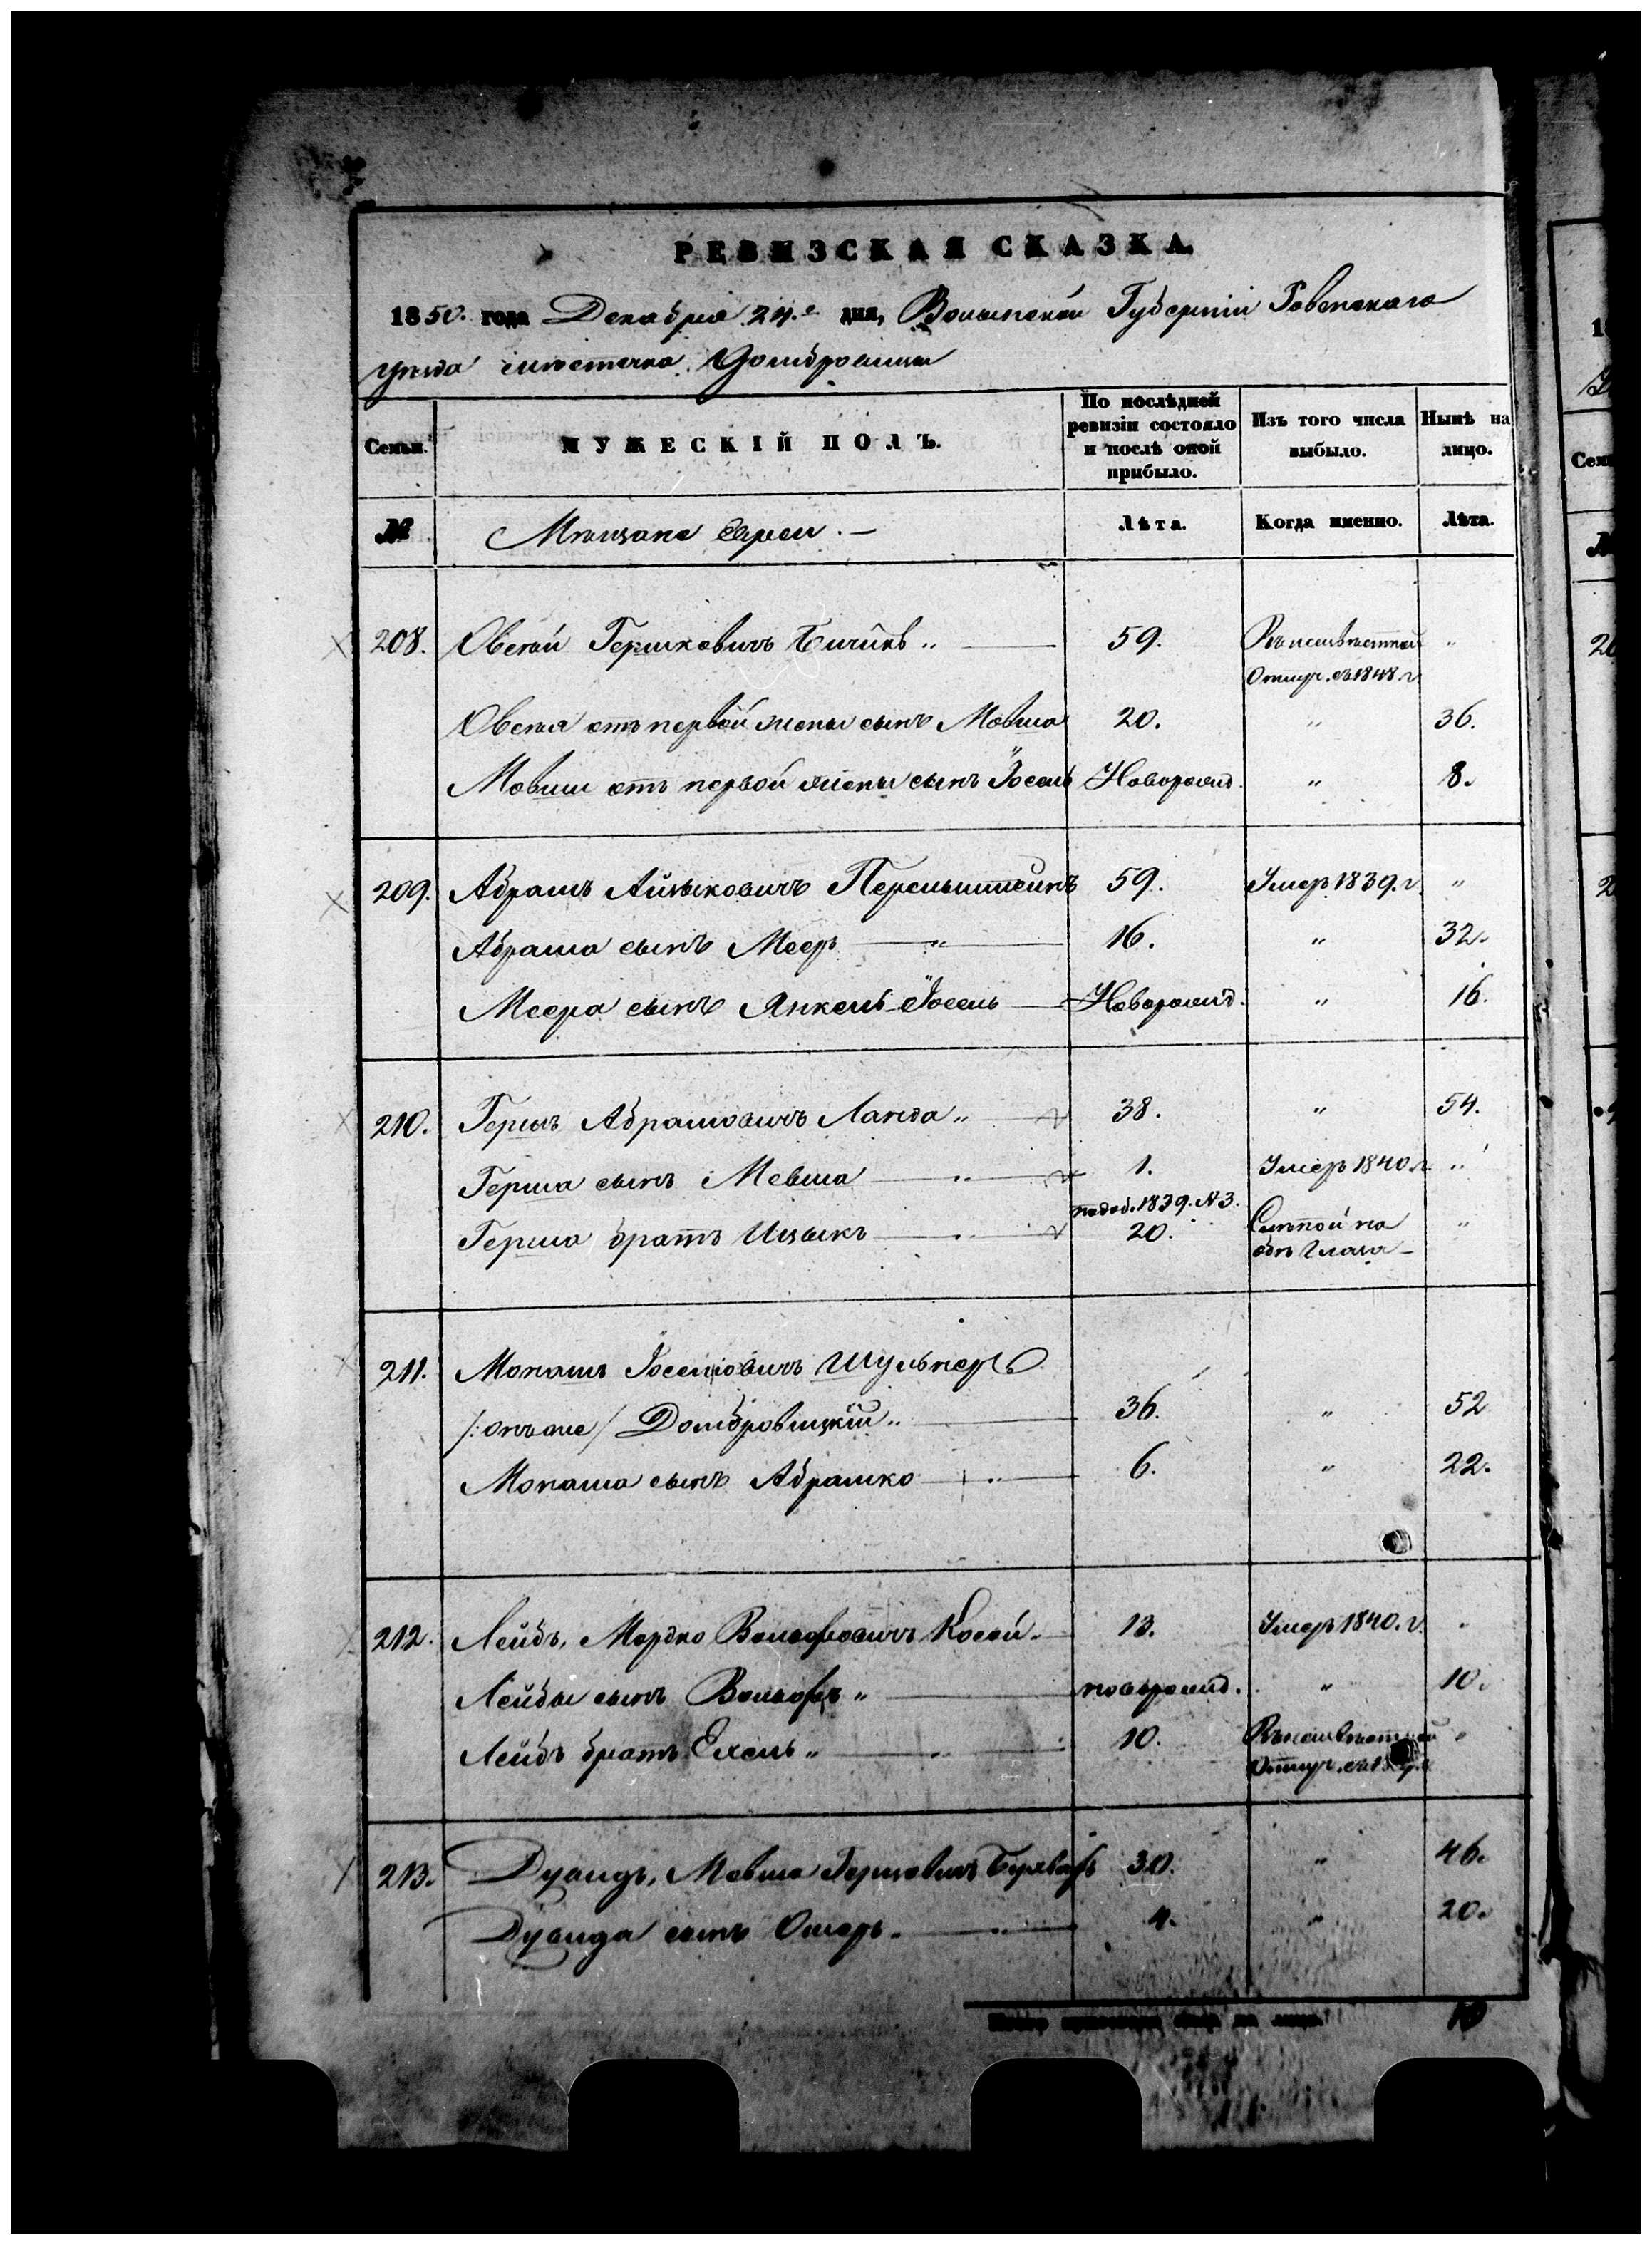 РЕВИЗСКАЯ СКАЗКА.
1850. года Декабря 24.е дня, Волынской Губерніи Ровенскаго
уѣзда мѣстечка Домбровица
Семьи.
МУЖЕСКІЙ ПОЛЪ.
По послѣдней ревизіи состояло и послѣ оной прибыло.
Изъ того числа выбыло.
Нынѣ на лицо.
№ Мѣщане Евреи. — Лѣта. Когда именно. Лѣта.
208. Овсѣй Гершковичъ 59. Въ неизвѣстной "
Отлуч. съ 1848 г.
Овсѣя отъ первой жены сынъ Мовша 20. " 36.
Мовши отъ первой жены сынъ Іосель Новорожд. " 8.
209. Абрамъ Айзыковичъ Перельштейнъ 59. Умеръ 1839. г. "
Абрама сынъ Меер " 16. " 32.
Меера сынъ Янкель-Іосель Новорожд. " 16.
210. Гершъ Абрамовичъ Ланда " 38. " 54.
Герша сынъ Мовша " 1. Умеръ 1840. г. "
1839. №3.
Герша братъ Ицыкъ " 20. "
211. Монашъ Іоселіовичъ Шульнеръ
/:онъ же/ Домбровицкій " 36. " 52
Монаша сынъ Абрамко " 6. " 22.
212. Лейбъ, Мордко Вольфовичъ Косой. 13. Умеръ 1840. г. "
Лейбы сынъ Вольфъ " новорожд. " 10.
Лейбъ братъ Ехель " 10. Въ неизвѣстной "
Отлуч.
213. Дувидъ, Мовша Герцовичъ 30. " 46.
Дувида сынъ Ошеръ. " 4. " 20.
Итого мужеска пола на лицо 10